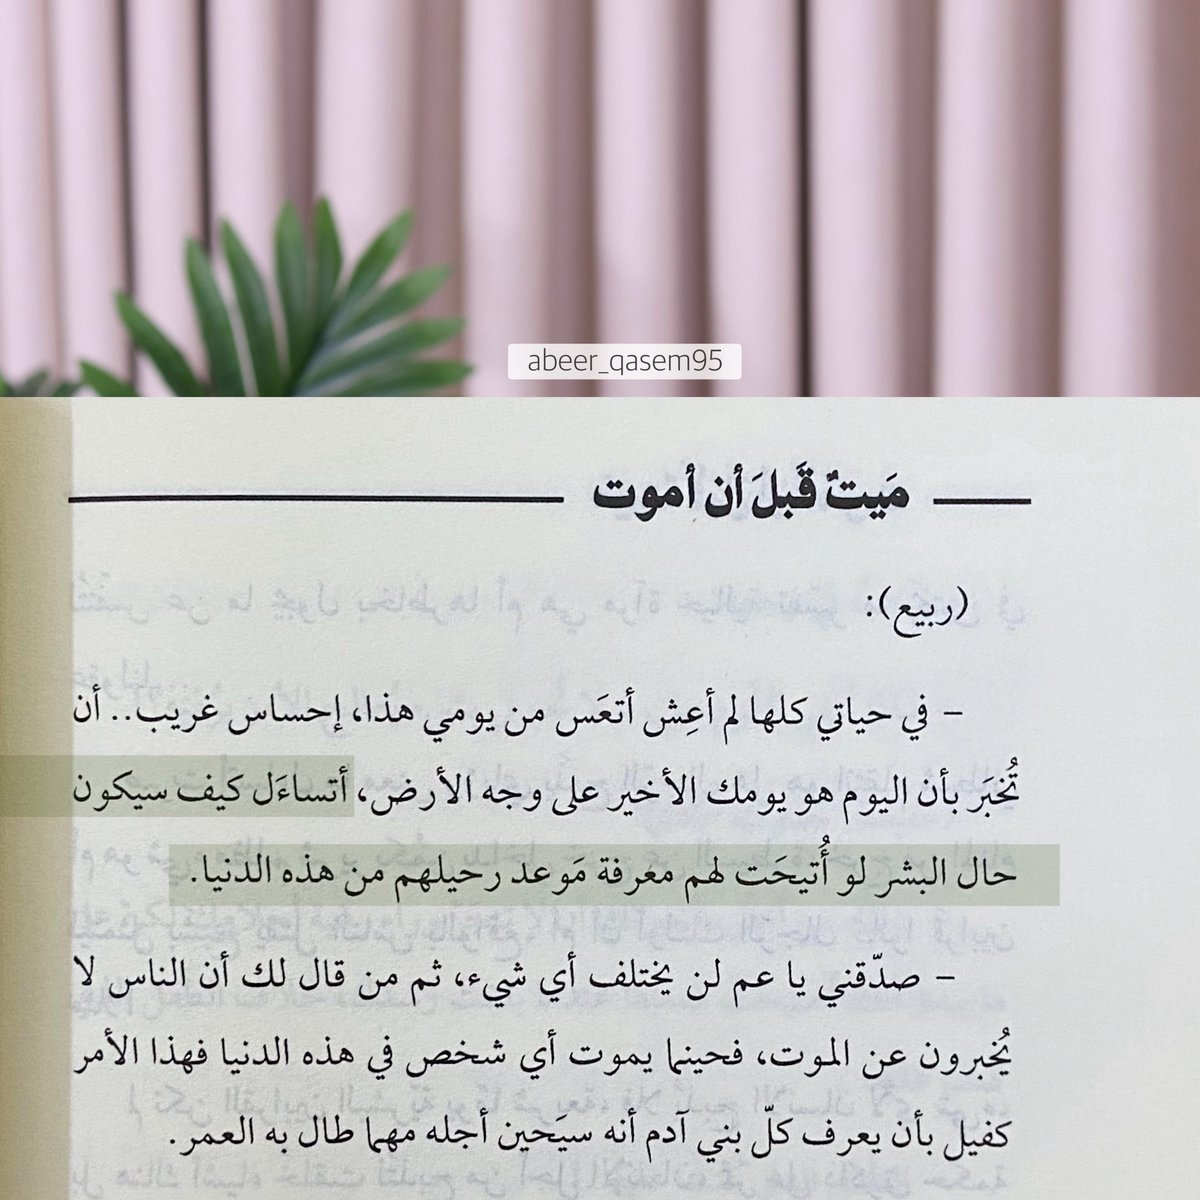 abeer_qasem95
مَيتٌ قَبلَ أن أموت
(ربيع):
– في حياتي كلها لم أعِش أتعَس من يومي هذا، إحساس غريب.. أن
تُخبَر بأن اليوم هو يومك الأخير على وجه الأرض، أتساءَل كيف سيكون
حال البشر لو أُتيحَت لهم معرفة مَوعد رحيلهم من هذه الدنيا.
– صدّقني يا عم لن يختلف أي شيء، ثم من قال لك أن الناس لا
يُخبرون عن الموت، فحينما يموت أي شخص في هذه الدنيا فهذا الأمر
كفيل بأن يعرف كلّ بني آدم أنه سيَحين أجله مهما طال به العمر.